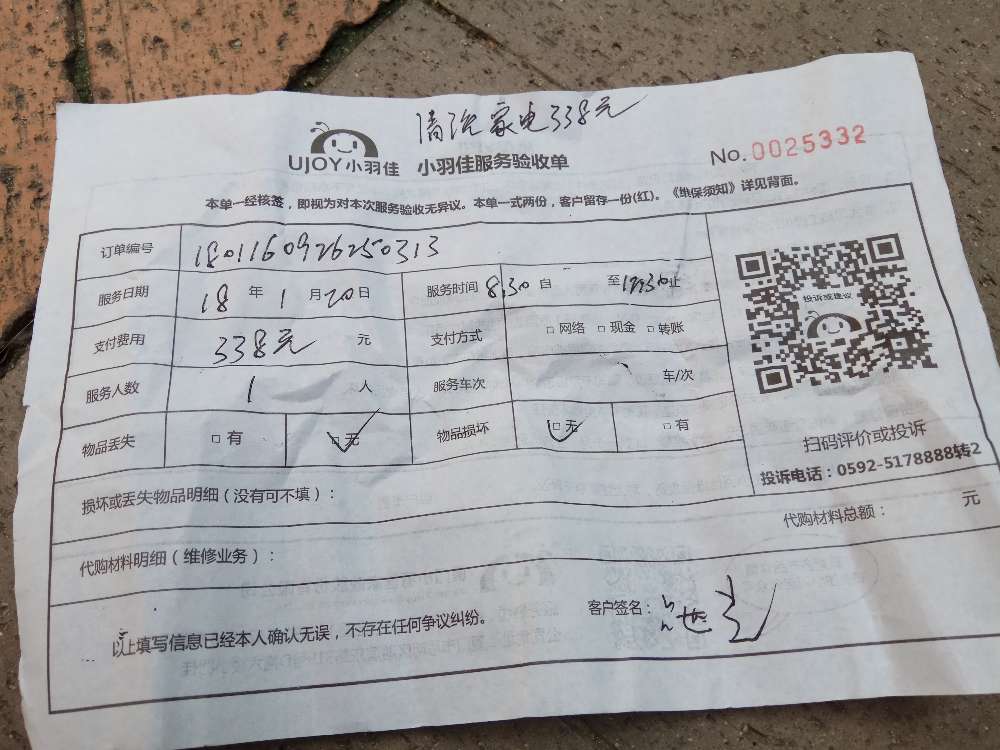 清洗家电338元
UJOY小羽佳 小羽佳服务验收单 No.0025332
本单一经核签，即视为对本次服务验收无异议。本单一式两份，客户留存一份(红)。《维保须知》详见背面。
订单编号 1801160926250313
服务日期 18年1月20日 服务时间 8:30自 至12:30止
投诉或建议
支付费用 338元 元 支付方式 □网络 □现金 □转账
服务人数 1 人 服务车次 车/次
物品丢失 □有 ☑无 物品损坏 ☑无 □有
扫码评价或投诉
投诉电话：0592-5178888转2
损坏或丢失物品明细（没有可不填）：
代购材料明细（维修业务）： 代购材料总额： 元
以上填写信息已经本人确认无误，不存在任何争议纠纷。 客户签名：